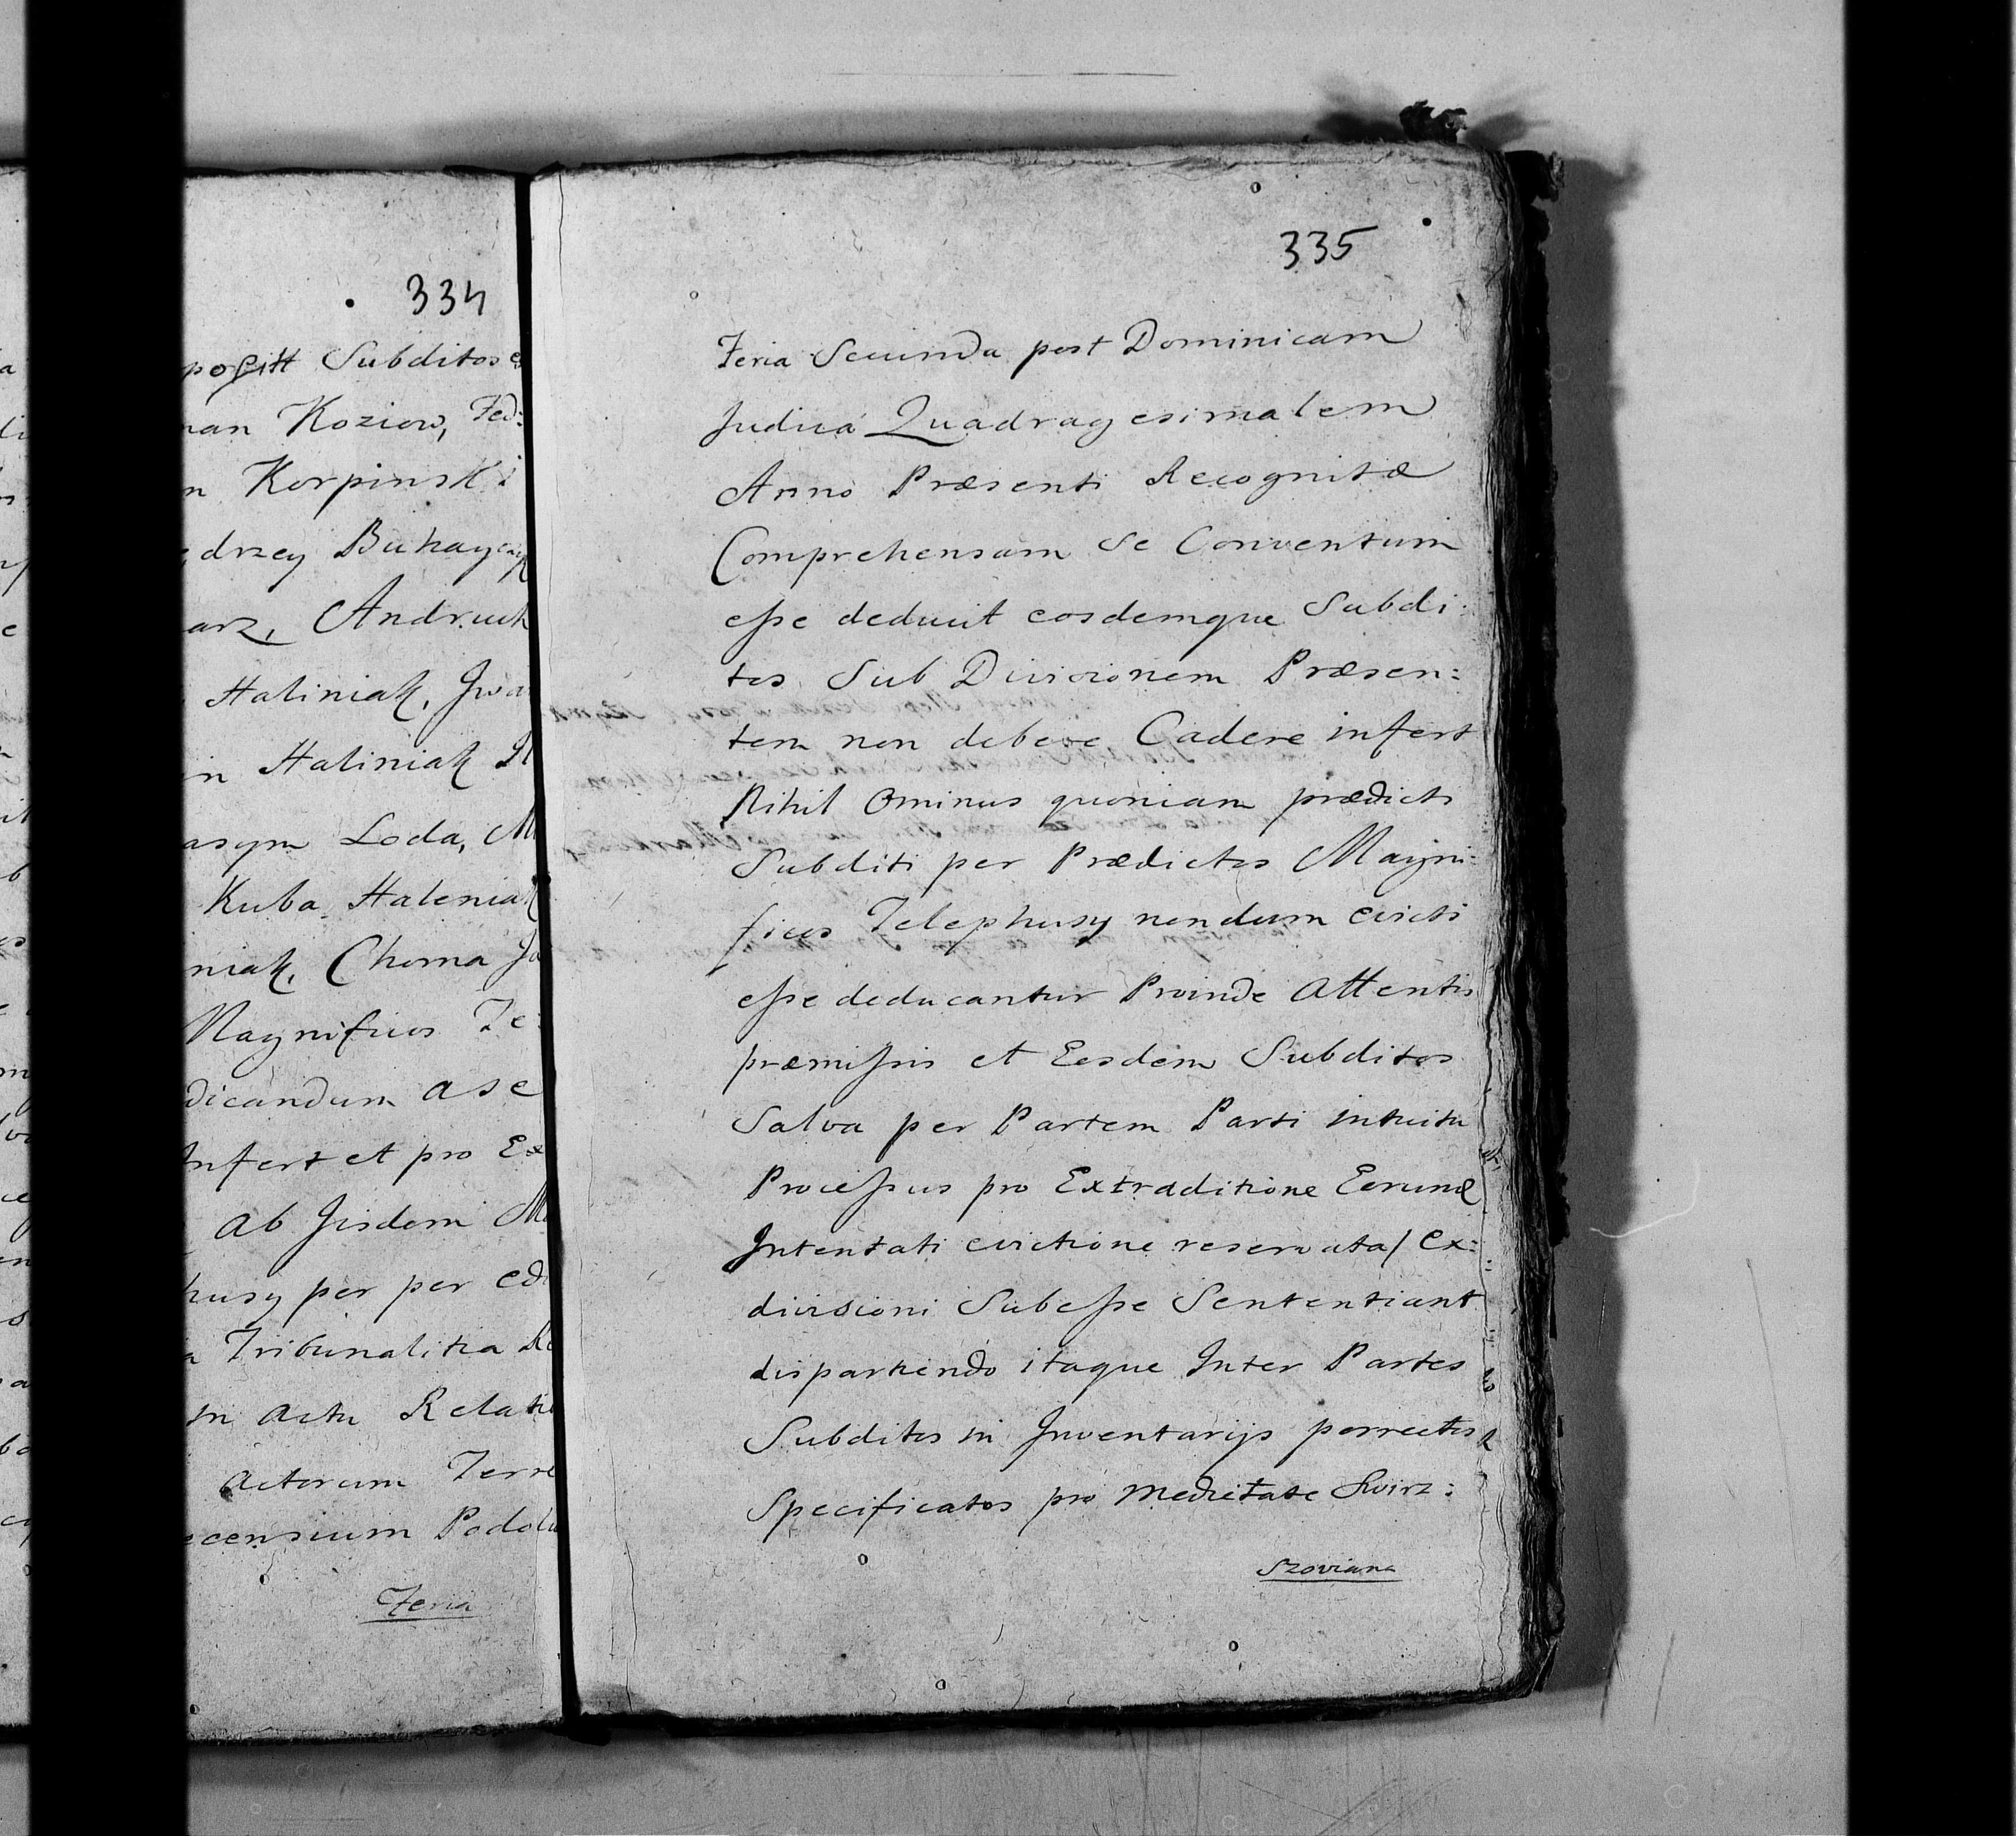 334
pogitt Subditos
nan Koziow, Fed:
n Korpinski
drzey Buhay
arz, Andruch
Haliniak, Jwa
in Haliniak
asym Loda, M
Kuba Haleniak
niak, Choma Ja
Magnificos Te:
dicandum a se
Infert et pro Ex
ab Jisdem Ma
husy per per edi
a Tribunalitia Re
in actu Relati
Actorum Terre
ecensium Podoli
Feria
335
Feria Secunda post Dominicam
Judica Quadragesimalem
Anno Præsenti Recognitæ
Comprehensam se Conventum
esse deducit eosdemque Subdi:
tos Sub Divisionem Præsen:
tem non debere Cadere infert
Nihil Ominus quoniam prædicti
Subditi per Prædictos Magni:
ficos Telephusy nondum evicti
esse deducantur Proinde Attentis
præmissis et Eosdem Subditos
Salva per Partem Parti intuitu
Processus pro Extraditione Eorund
Intentati evictione reservata/ Ex:
divisioni Subesse Sententiant
dispartiendo itaque Inter Partes
Subditos in Inventarijs porrectis
Specificatos pro Medietate Swirz:
szoviana